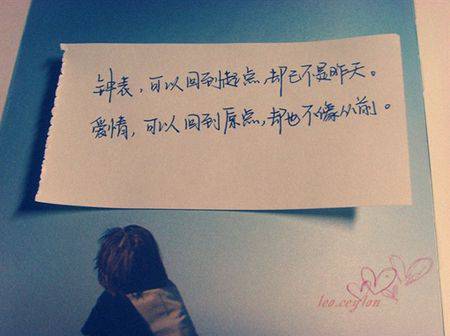 钟表，可以回到起点，却已不是昨天。
爱情，可以回到原点，却也不像从前。
leo.ceylon